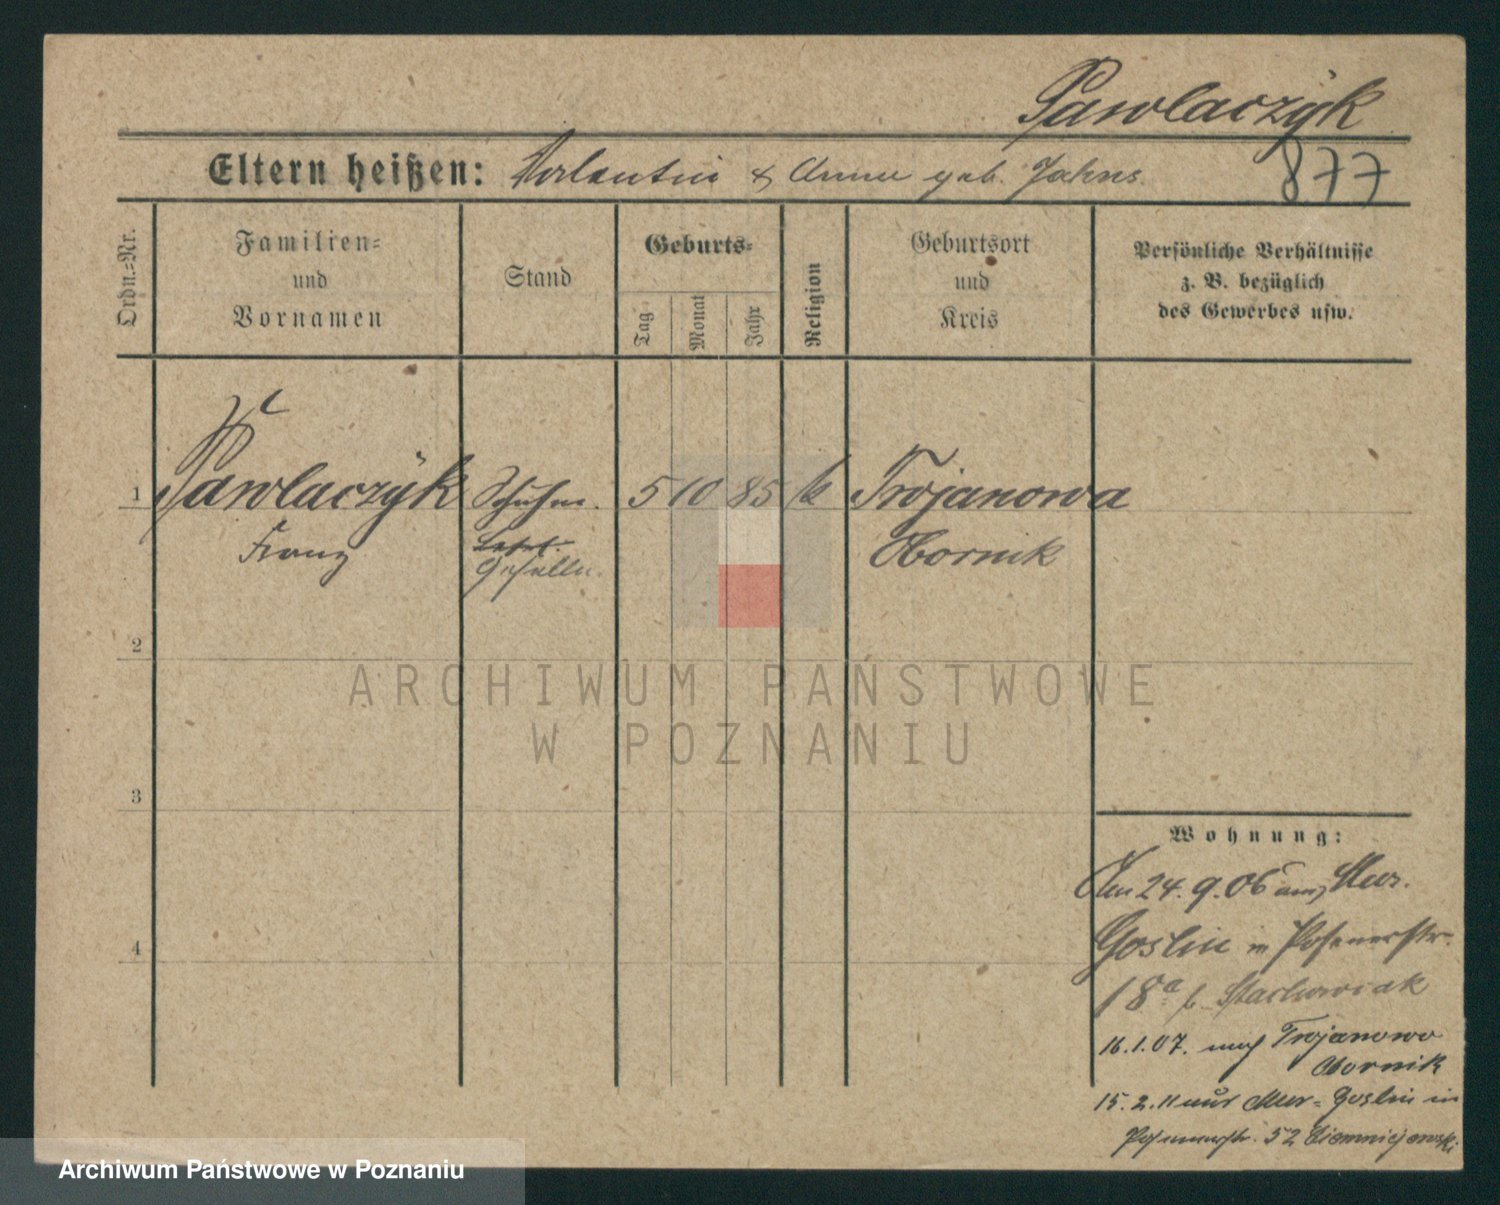 Pawlaczÿk
877
Eltern heißen: Valentin & Anna geb. Jahns.
Ordn.=Nr.
Familien=
und
Vornamen
Stand
Geburts=
Tag
Monat
Jahr
Religion
Geburtsort
und
Kreis
Persönliche Verhältnisse
z. B. bezüglich
des Gewerbes usw.
1 Pawlaczÿk Schuhm. 5 10 85 k Trojanowa
Franz Lehrl. Obornik
Geselle.
2
3
4
ARCHIWUM PAŃSTWOWE
W POZNANIU
Wohnung:
Am 24.9.06 aus Mur.
Goslin in Posenerstr.
18a b. Stachowiak
16.1.07. nach Trojanowo
Obornik
15.2.11 aus Mur=Goslin in
Posenerstr. 52
Archiwum Państwowe w Poznaniu